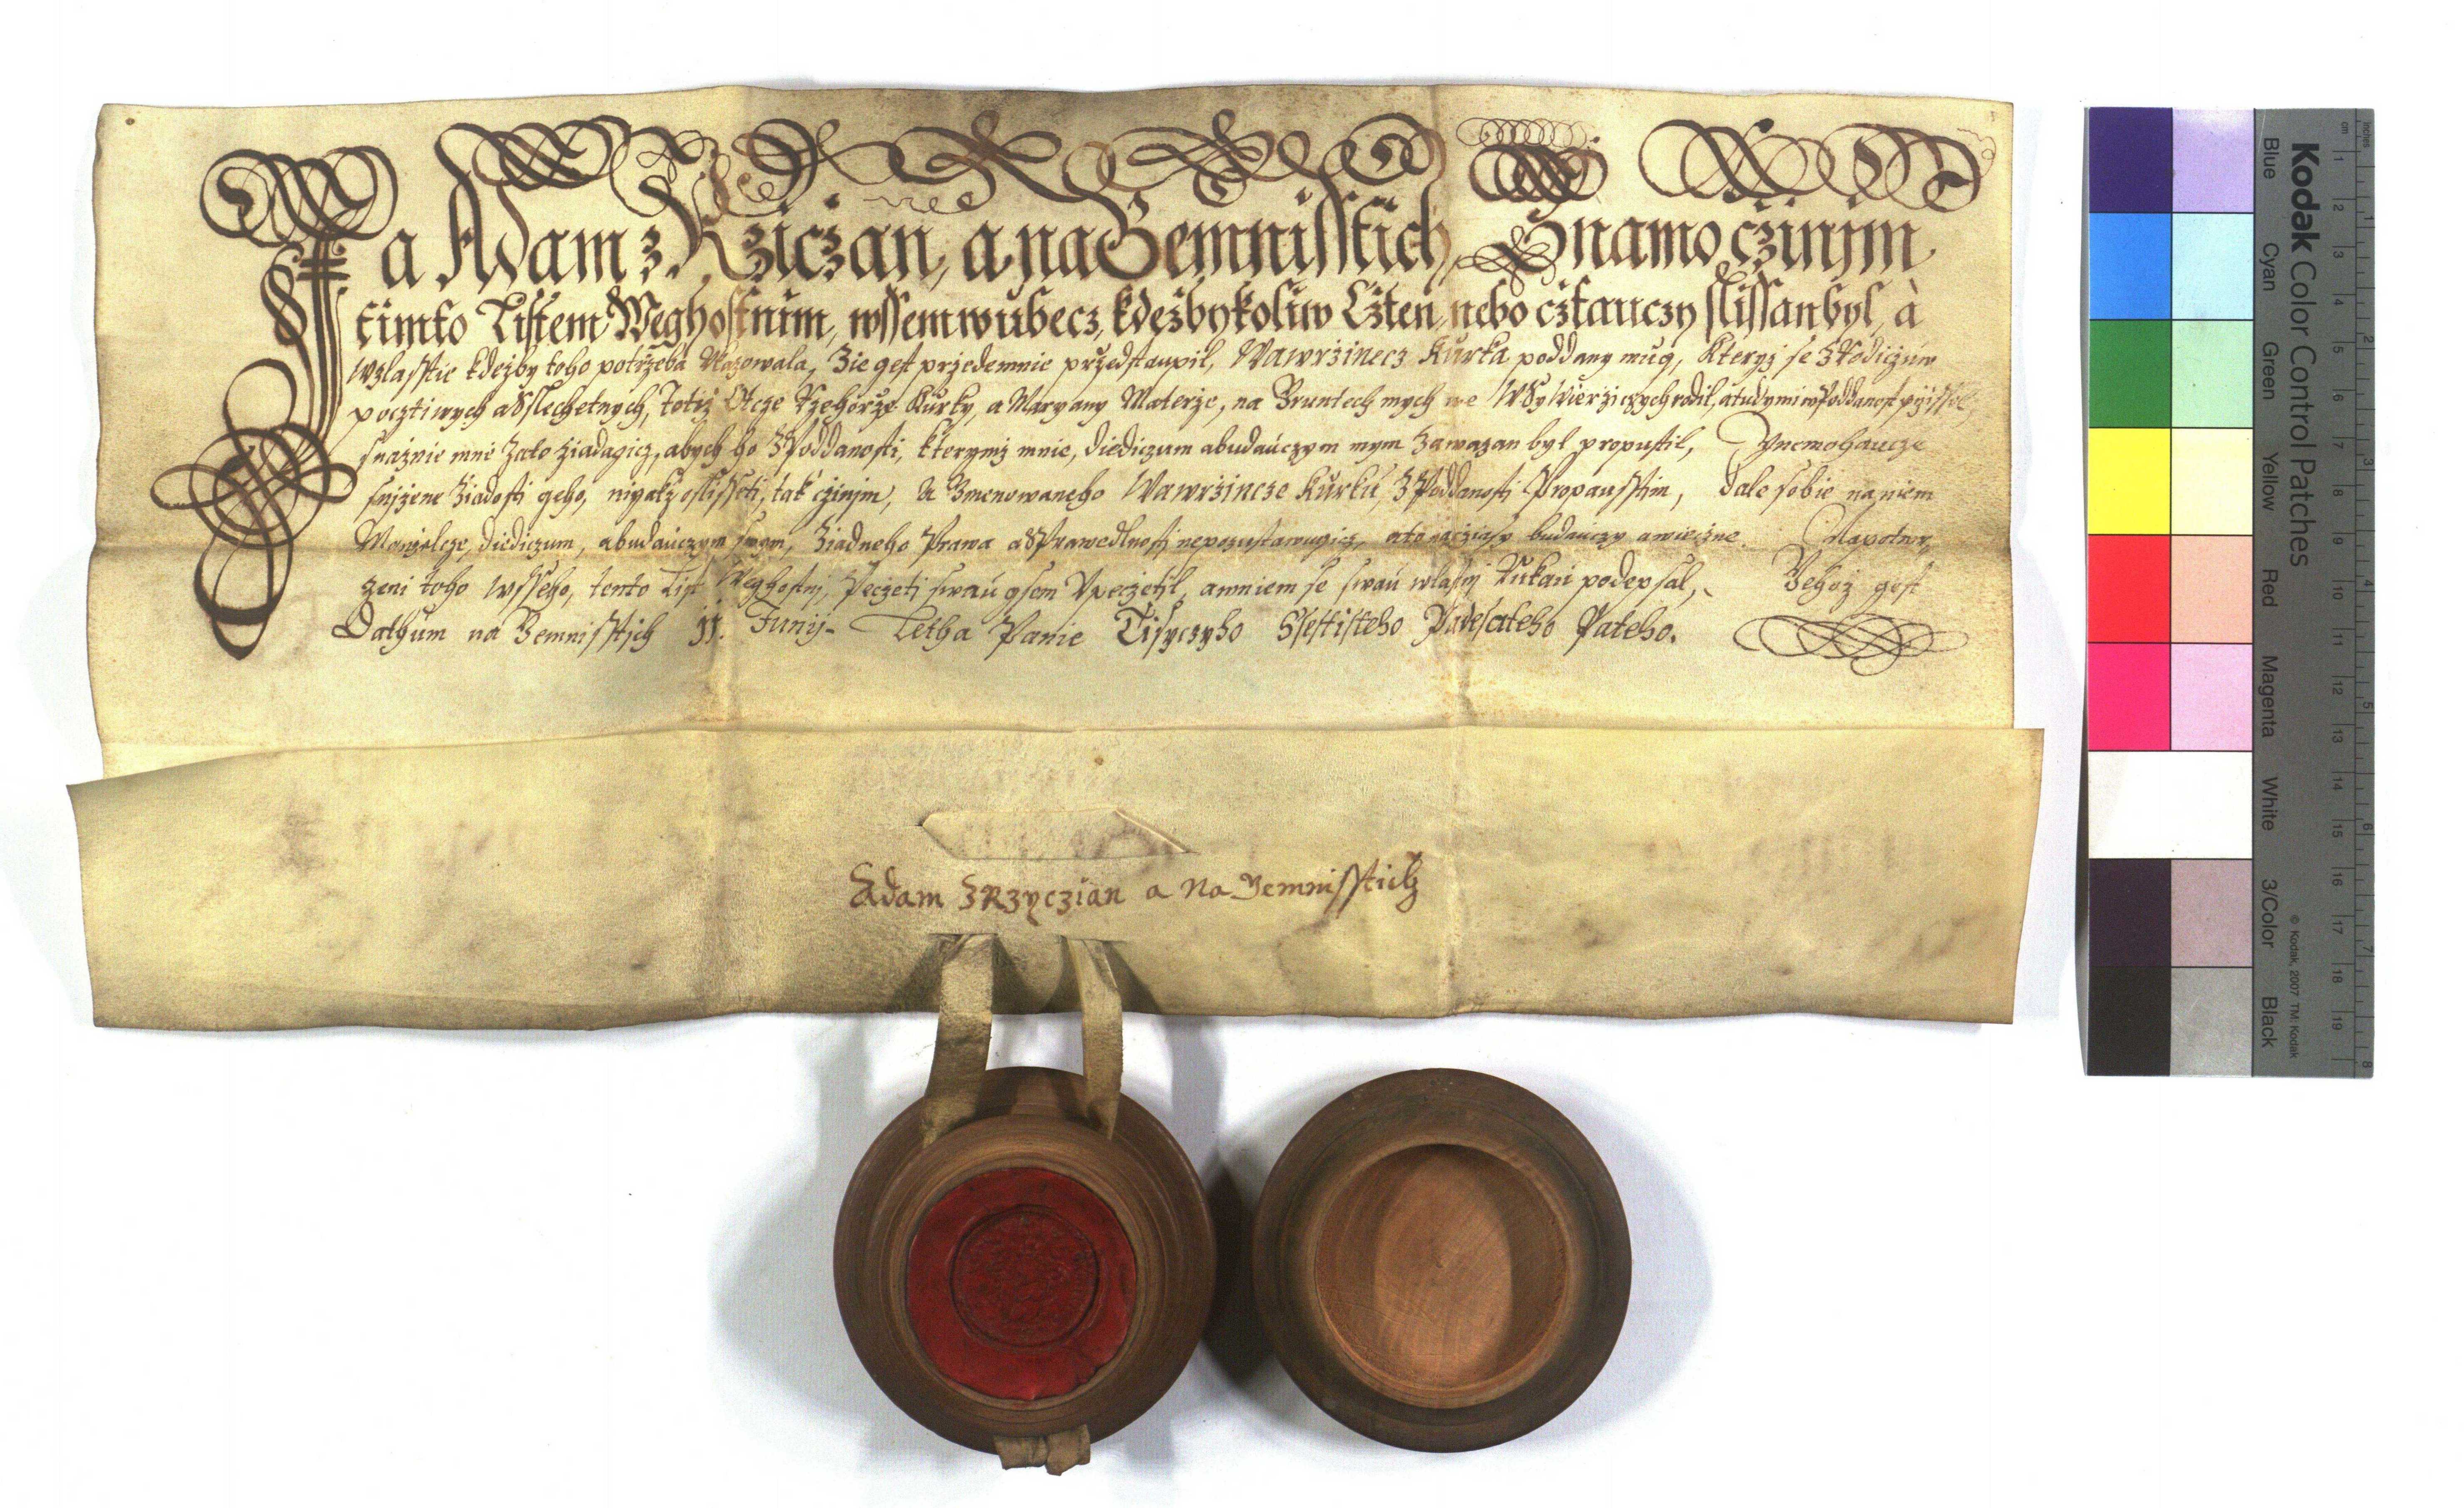 Ja Adam z Rziczan, a na Zemnisstich, Znamo cžinjm
timto Listem Weghostnim, wssem wubecz, kdežbykoliw Cžten, nebo cžtauczy slissan byl, à
Wzlasstie kdežby toho potržeba Vkazowala, Zie gest prżedemnie pržedstaupil, Wawržinecz Kurka poddany mug, kteryž se z Rodicžuw
pocztiwych a Sslechetnych, Totiž Otcze Ržehorže Kurky, a Maryany Materze, na Gruntech mych we Wsy Wieržiczych rodil, a tudy mi w Poddanost
snažnie mne zato žiadagicz, abych ho z Poddanosti, kterymž mnie, diediczum a buduaczym mym zawazan byl propustil, Y nemohaucze
snižene žiadosti geho, nigakž oslisseti, tak cžinjm, A Zmenowaneho Wawržincze Kurku, z Poddanosti Propausstim, dale sobie na niem
Manželcze, diediczum, a budauczym swym, žiadneho Prawa a Sprawedlnosti nepozustawugicz, a to na cžiasy budauczy a wieczne. Na potwr,
zeni toho wsseho, tento List Weghostnj, Peczeti swau gsem Vpeczetil, a w niem se swau wlastnj Rukau podepsal, Gehož gest
Dathum na Zemnisstjch 11. Junij. Letha Panie Tisyczyho Ssestisteho Padesateho Pateho.
Adam z Rzyczian a na Zemnisstich
Kodak Color Control Patches
Blue Cyan Green Yellow Red Magenta White 3/Color Black
© Kodak, 2007 TM: Kodak
cm 1 2 3 4 5 6 7 8 9 10 11 12 13 14 15 16 17 18 19
inches 1 2 3 4 5 6 7 8